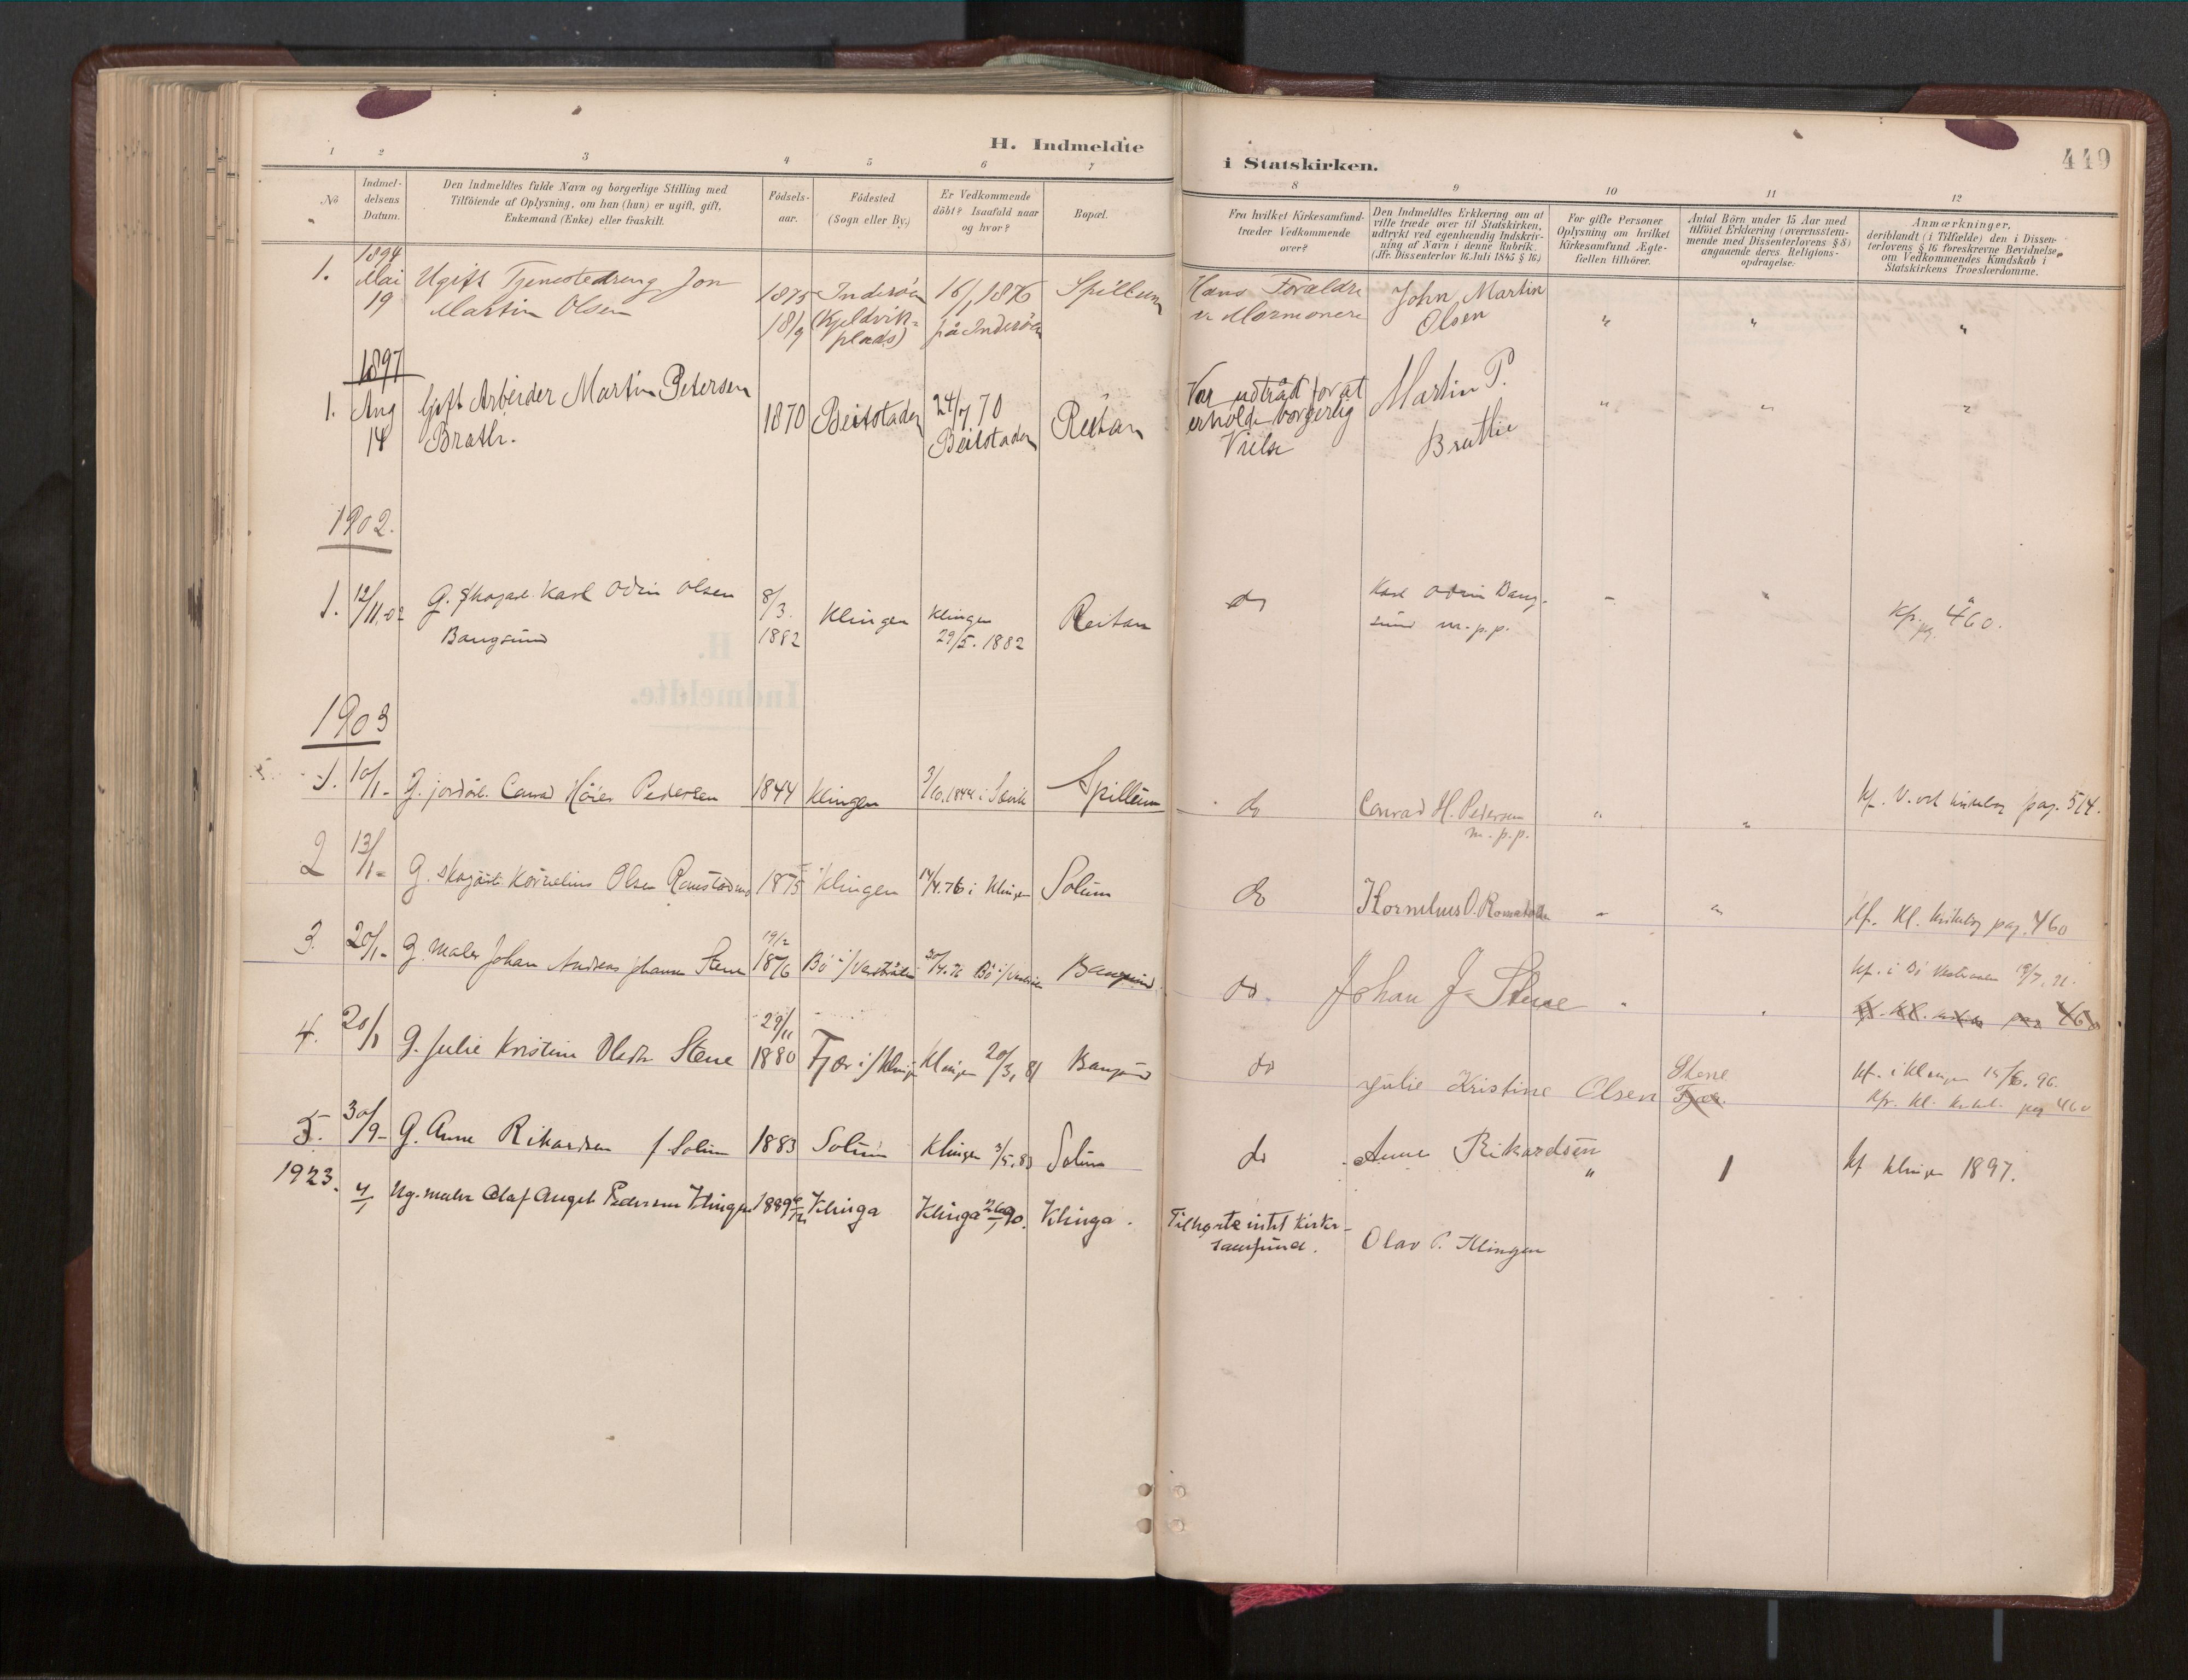 H. Indmeldte i Statskirken.
449
1 2 3 4 5 6 7 8 9 10 11 12
No
Indmel-
delsens
Datum.
Den Indmeldtes fulde Navn og borgerlige Stilling med
Tilföiende af Oplysning, om han (hun) er ugift, gift,
Enkemand (Enke) eller fraskilt.
Födsels-
aar.
Födested
(Sogn eller By.)
Er Vedkommende
döbt? Isaafald naar
og hvor?
Bopæl.
Fra hvilket Kirkesamfund
træder Vedkommende
over?
Den Indmeldtes Erklæring om at
ville træde over til Statskirken,
udtrykt ved egenhændig Indskriv-
ning af Navn i denne Rubrik.
(Jfr. Dissenterlov 16 Juli 1845 § 16)
For gifte Personer
Oplysning om hvilket
Kirkesamfund Ægte-
fællen tilhörer.
Antal Börn under 15 Aar med
tilföiet Erklæring (overensstem-
mende med Dissenterlovens § 8)
angaaende deres Religions-
opdragelse.
Anmærkninger,
deriblandt (i Tilfælde) den i Dissen-
terlovens § 16 foreskrevne Bevidnelse
om Vedkommendes Kundskab i
Statskirkens Troeslærdomme.
1.
1894
Mai
19
Ugift Tjenestedreng Jon
Martin Olsen
1875
18/9
Inderöen
(Kjeldvik-
plads)
16/1 1876
på Inderöen
Spillum
Hans Forældre
er Mormonere
John Martin
Olsen
" " "
1897
1.
Aug
14
Gift Arbeider Martin Petersen
Brath.
1870
Beitstaden
24/7 70
Beitstaden
Reitan
Var udtrådt for at
erholde borgerlig
Vielse
Martin P.
Brattli
" " "
1902.
1.
12/11.02
G. skogarb. Karl Odin Olsen
Bangsund
8/3.
1882
Klingen
Klingen
29/5. 1882
Reitan
do
Karl Odin Bang-
sund m.p.p.
- " "
Kfr. pg. 460.
1903
1.
10/1-
G. jordbr. Conrad Höier Pedersen
1844
Klingen
Spillum
do
Conrad H. Pedersen
m.p.p.
" "
pag. 514.
2
13/1-
G. skogarb. Kornelius Olsen
1875
Klingen
14/4.76 i Klingen
Solum
do
Kornelius O.
- "
Kfr. Kl. kirkebog pag. 460
3.
20/1-
G. maler Johan Andreas Johansen Stene
19/2
1876
Bö i/Vesterålen
30/4.76 Bö i/Vesterålen
Bangsund
do.
Johan J. Stene
" "
Kf. i Bö Vesteraalen
4.
20/1
G. Julie Kristine Olsdtr Stene
29/11
1880
Fjær i/Klingen
Klingen 20/3, 81
Bangsund
do
Julie Kristine Olsen
Stene
Fjær.
Kf. i Klingen 14/6. 96.
Kfr. Kl. kirkeb. pag 460
5.
30/9-
G. Anne Rikardsen f Solum
1883
Solum
Klingen 3/5.83
Solum
do
Anne Rikardsen
"
1
Kf Klingen 1897.
1923.
4/1
Ug. maler Olaf Angel Pedersen Klingen
1889
Klinga
Klinga 26/1 90.
Klinga.
Tilhørte intet kirke-
samfund.
Olav P. Klingen